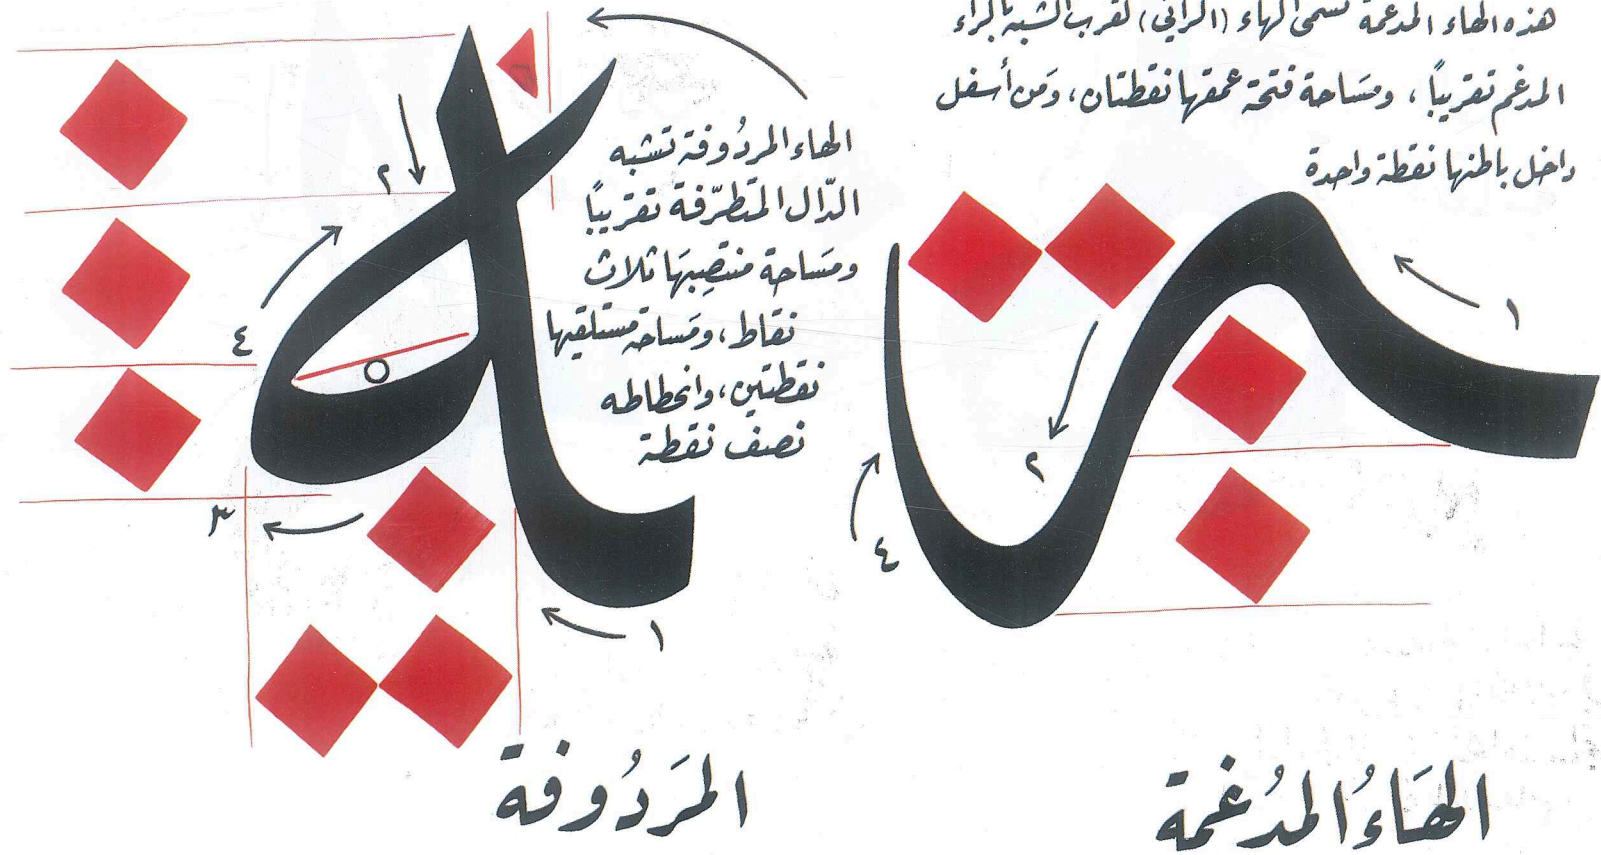 هذه الهاء المدغمة تسمى الهاء (الرائي) لقرب الشبه بالراء
المدغم تقريباً ، ومسَاحة فتحة عمقها نقطتان ، ومَن أسفل
داخل باطنها نقطة واحدة
١
٢
٤
الهَاءُ المدُغمة
الهاء المردُوفة تشبه
الدّال المتطرّفة تقريباً
ومسَاحة منتصِبهَا ثلاث
نقاط ، ومسَاحة مستلقيها
نقطتين ، وانحطاطه
نصف نقطة
٢
٤
٣
١
المَردُوفة